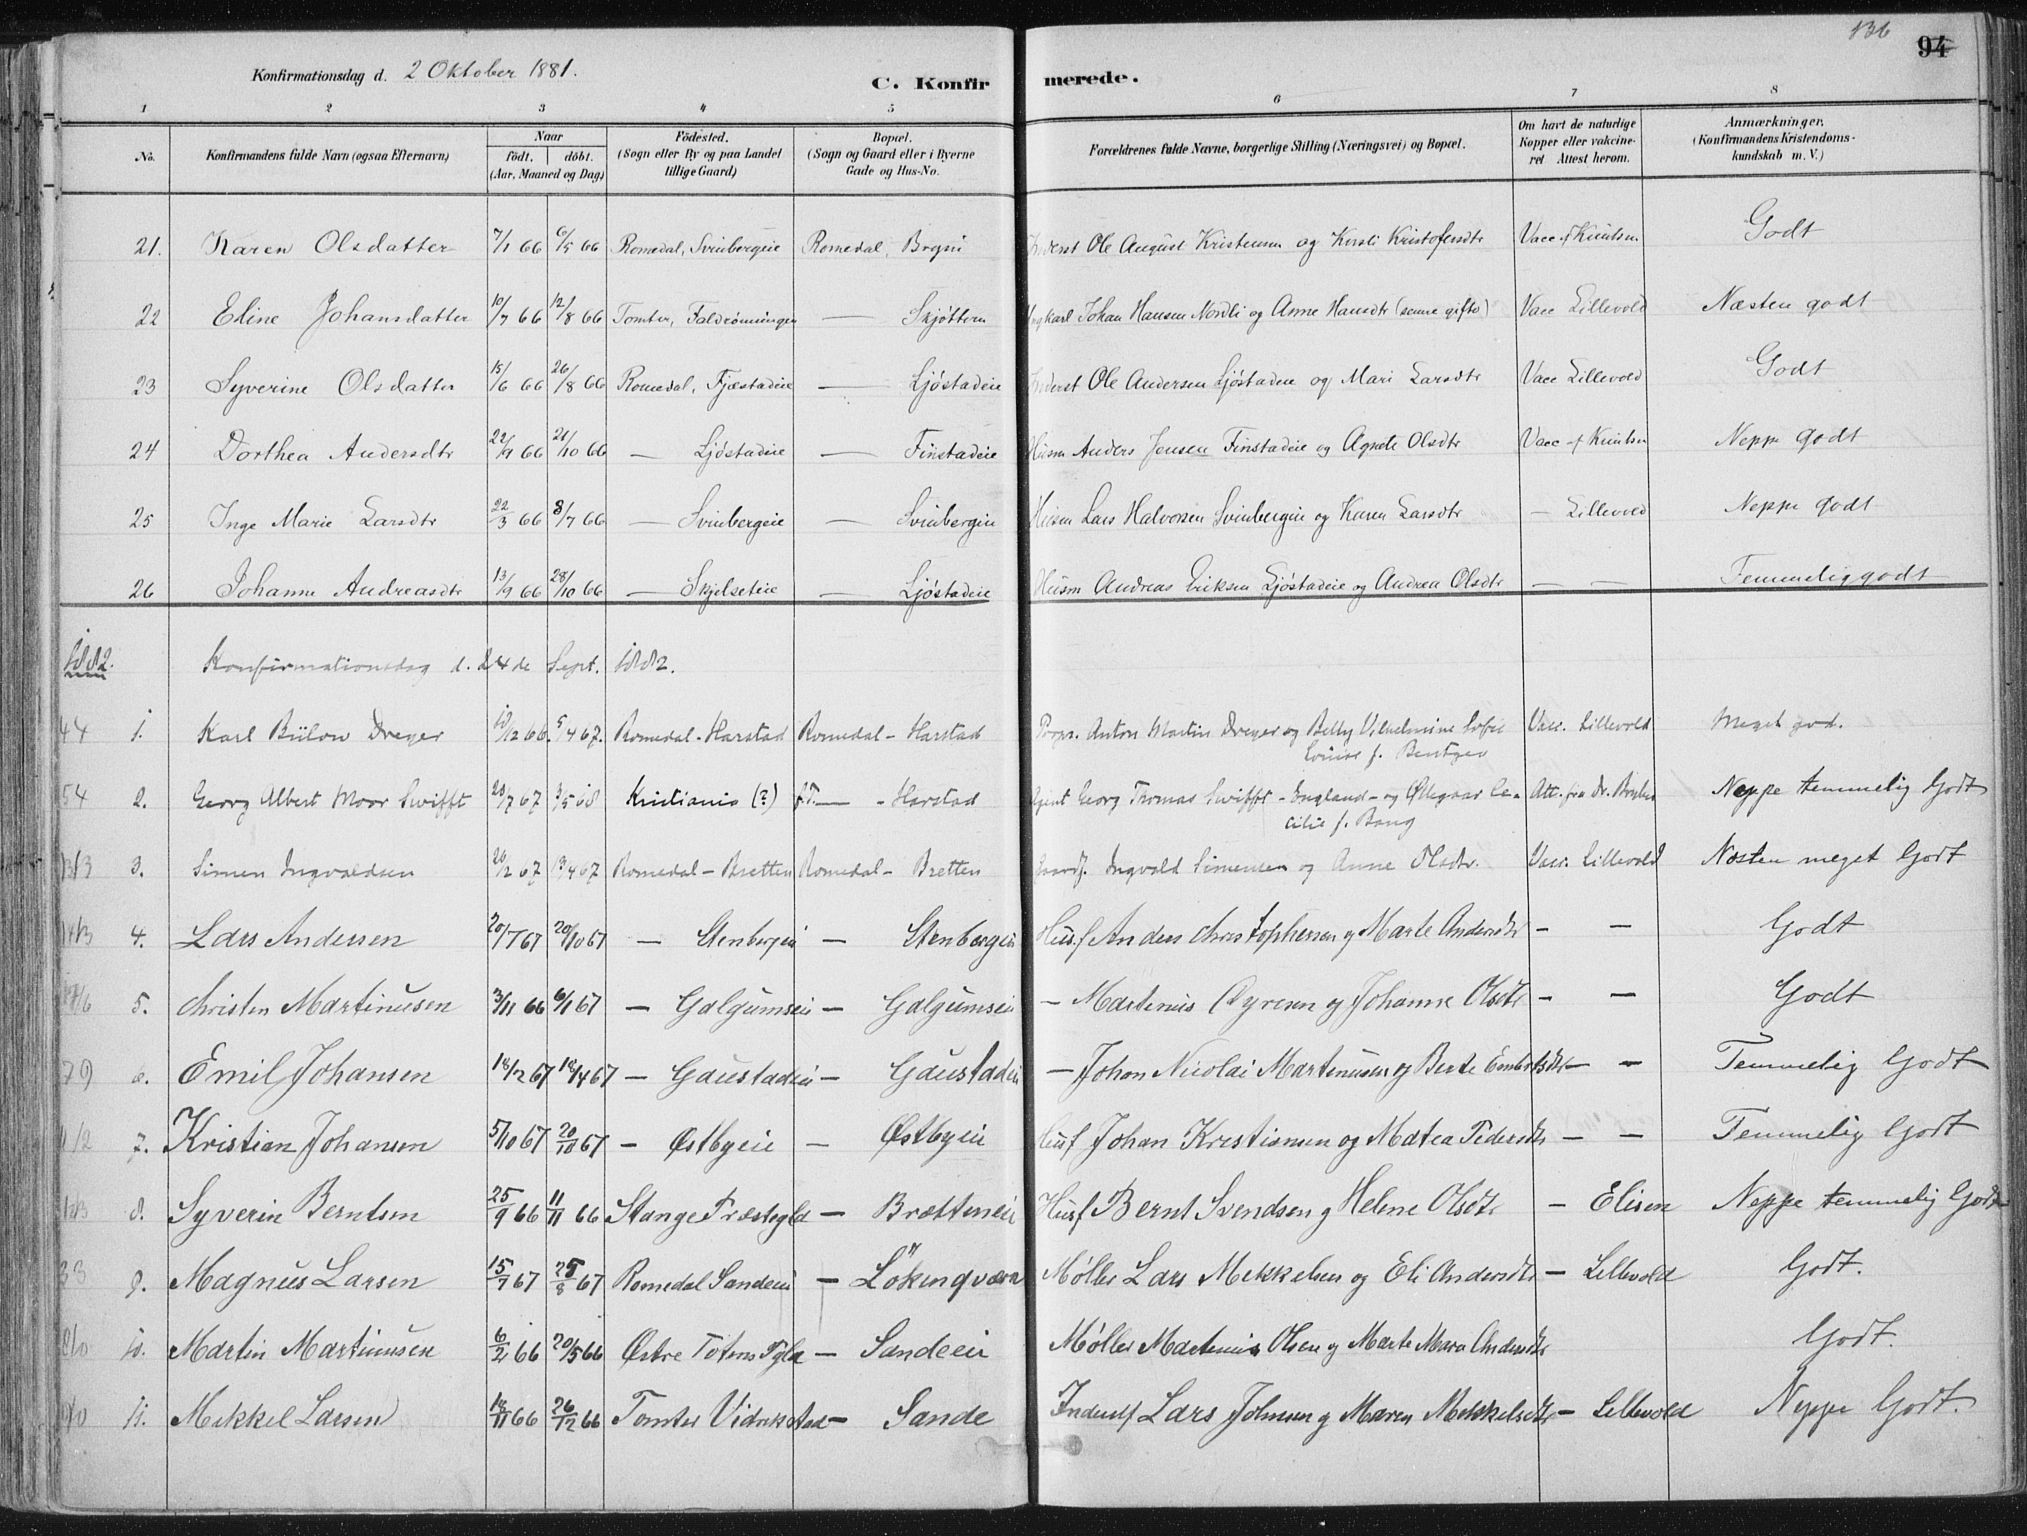 136
94
Konfirmationsdag d. 2 Oktober 1881.
C. Konfirmerede.
1 2 3 4 5 6 7 8
No.
Konfirmandens fulde Navn (ogsaa Efternavn)
Naar
födt. döbt.
(Aar, Maaned og Dag)
Födested.
(Sogn eller By og paa Landet
tillige Gaard)
Bopæl.
(Sogn og Gaard eller i Byerne
Gade og Hus-No.
Forældrenes fulde Navne, borgerlige Stilling (Næringsvei) og Bopæl.
Om havt de naturlige
Kopper eller vakcine-
ret Attest herom.
Anmærkninger.
(Konfirmandens Kristendoms-
kundskab m. V.)
21. Karen Olsdatter 7/1 66 6/5 66 Romedal, Svinbergeie Romedal, Inderst Ole August Kristensen og Kersti Kristofersdtr Vacc. Knutsen Godt
22 Eline Johansdatter 10/7 66 12/8 66 Tomter, — Skjøttern Johan Hansen Nordli og Anne Hansdtr Vacc Lillevold Næsten godt
23 Syverine Olsdatter 15/6 66 26/8 66 Romedal, Fjæstadeie — Ljøstadeie Inderst Ole Andersen Ljøstadeie og Mari Larsdtr Vacc Lillevold Godt
24 Dorthea Andersdtr 22/9 66 21/10 66 — Ljøstadeie — Finstadeie Husm Anders Jensen Finstadeie og Agnete Olsdtr Vacc. Knutsen Neppe godt
25 Inge Marie Larsdtr 22/3 66 8/7 66 — Svinbergeie — Svinbergeie Husm Lars Halvorsen Svinbergeie og Karen Larsdtr — Lillevold Neppe godt
26 Johanne Andreasdtr 13/9 66 28/10 66 — Skjelseteie — Ljøstadeie Husm Andreas Eriksen Ljøstadeie og Andrea Olsdtr — — Temmelig godt
1882. Konfirmationsdag d. 24de Sept. 1882.
44 1. Karl Bülow Dreyer 18/12 66. 5/4 67. Romedal - Harstad Romedal - Harstad Anton Martin Dreyer og Betty Vilhelmine Sofie Vacc. Lillevold Meget god.
Louise f. Bentzen
54 2. Georg Albert Moor Swifft 28/7 67 Kristiania (?) — - Harstad Agent Georg Thomas Swifft - England - og Øllegaar Ce- Att. fra Dr. Neppe temmelig Godt
cilie f. Bang
3. Simen Ingvaldsen 20/2 67 Romedal - Bretten Romedal - Bretten Gaardf. Ingvald Simensen og Anne Olsdtr. Vacc. Lillevold Næsten meget Godt
4. Lars Andersen 20/7 67 20/10 67 — Stenbergeie — Stenbergeie Husf Anders Christophersen og Marte Andersdtr — — Godt
5. Christen Martinusen 3/11 66 6/1 67 — Galgumseie — Galgumseie — Martinus Syversen og Johanne Olsdtr — — Godt
79 6. Emil Johansen 14/12 67 18/4 67 — Gaustadeie — Gaustadeie — Johan Nicolai Martinusen og Berte Embretsdtr — — Temmelig Godt
7. Kristian Johansen 5/10 67 20/10 67 — Østbyeie — Østbyeie Husf Johan Kristiansen og Matea Pedersdtr — — Temmelig Godt
8. Syverin Berntsen 25/9 66 11/11 66 Stange Præstegld — Brætteneie Husf Bernt Svendsen og Helene Olsdtr — Elisen Neppe temmelig Godt
33 9. Magnus Larsen 15/7 67 25/8 67 Romedal Sandeeie — Løkenqværn Møller Lars Mekkelsen og Eli Andersdtr — Lillevold Godt.
10. Martin Martinusen 6/2 66 20/5 66 Østre Totens Pgld — Sandeeie Møller Martinus Olsen og Marte Maria Andersdtr Godt.
11. Mekkel Larsen 18/11 66 26/12 66 Tomter Vidrikstad — Sande Inderst Lars Johnsen og Maren Mekkelsdtr — Lillevold Neppe Godt.